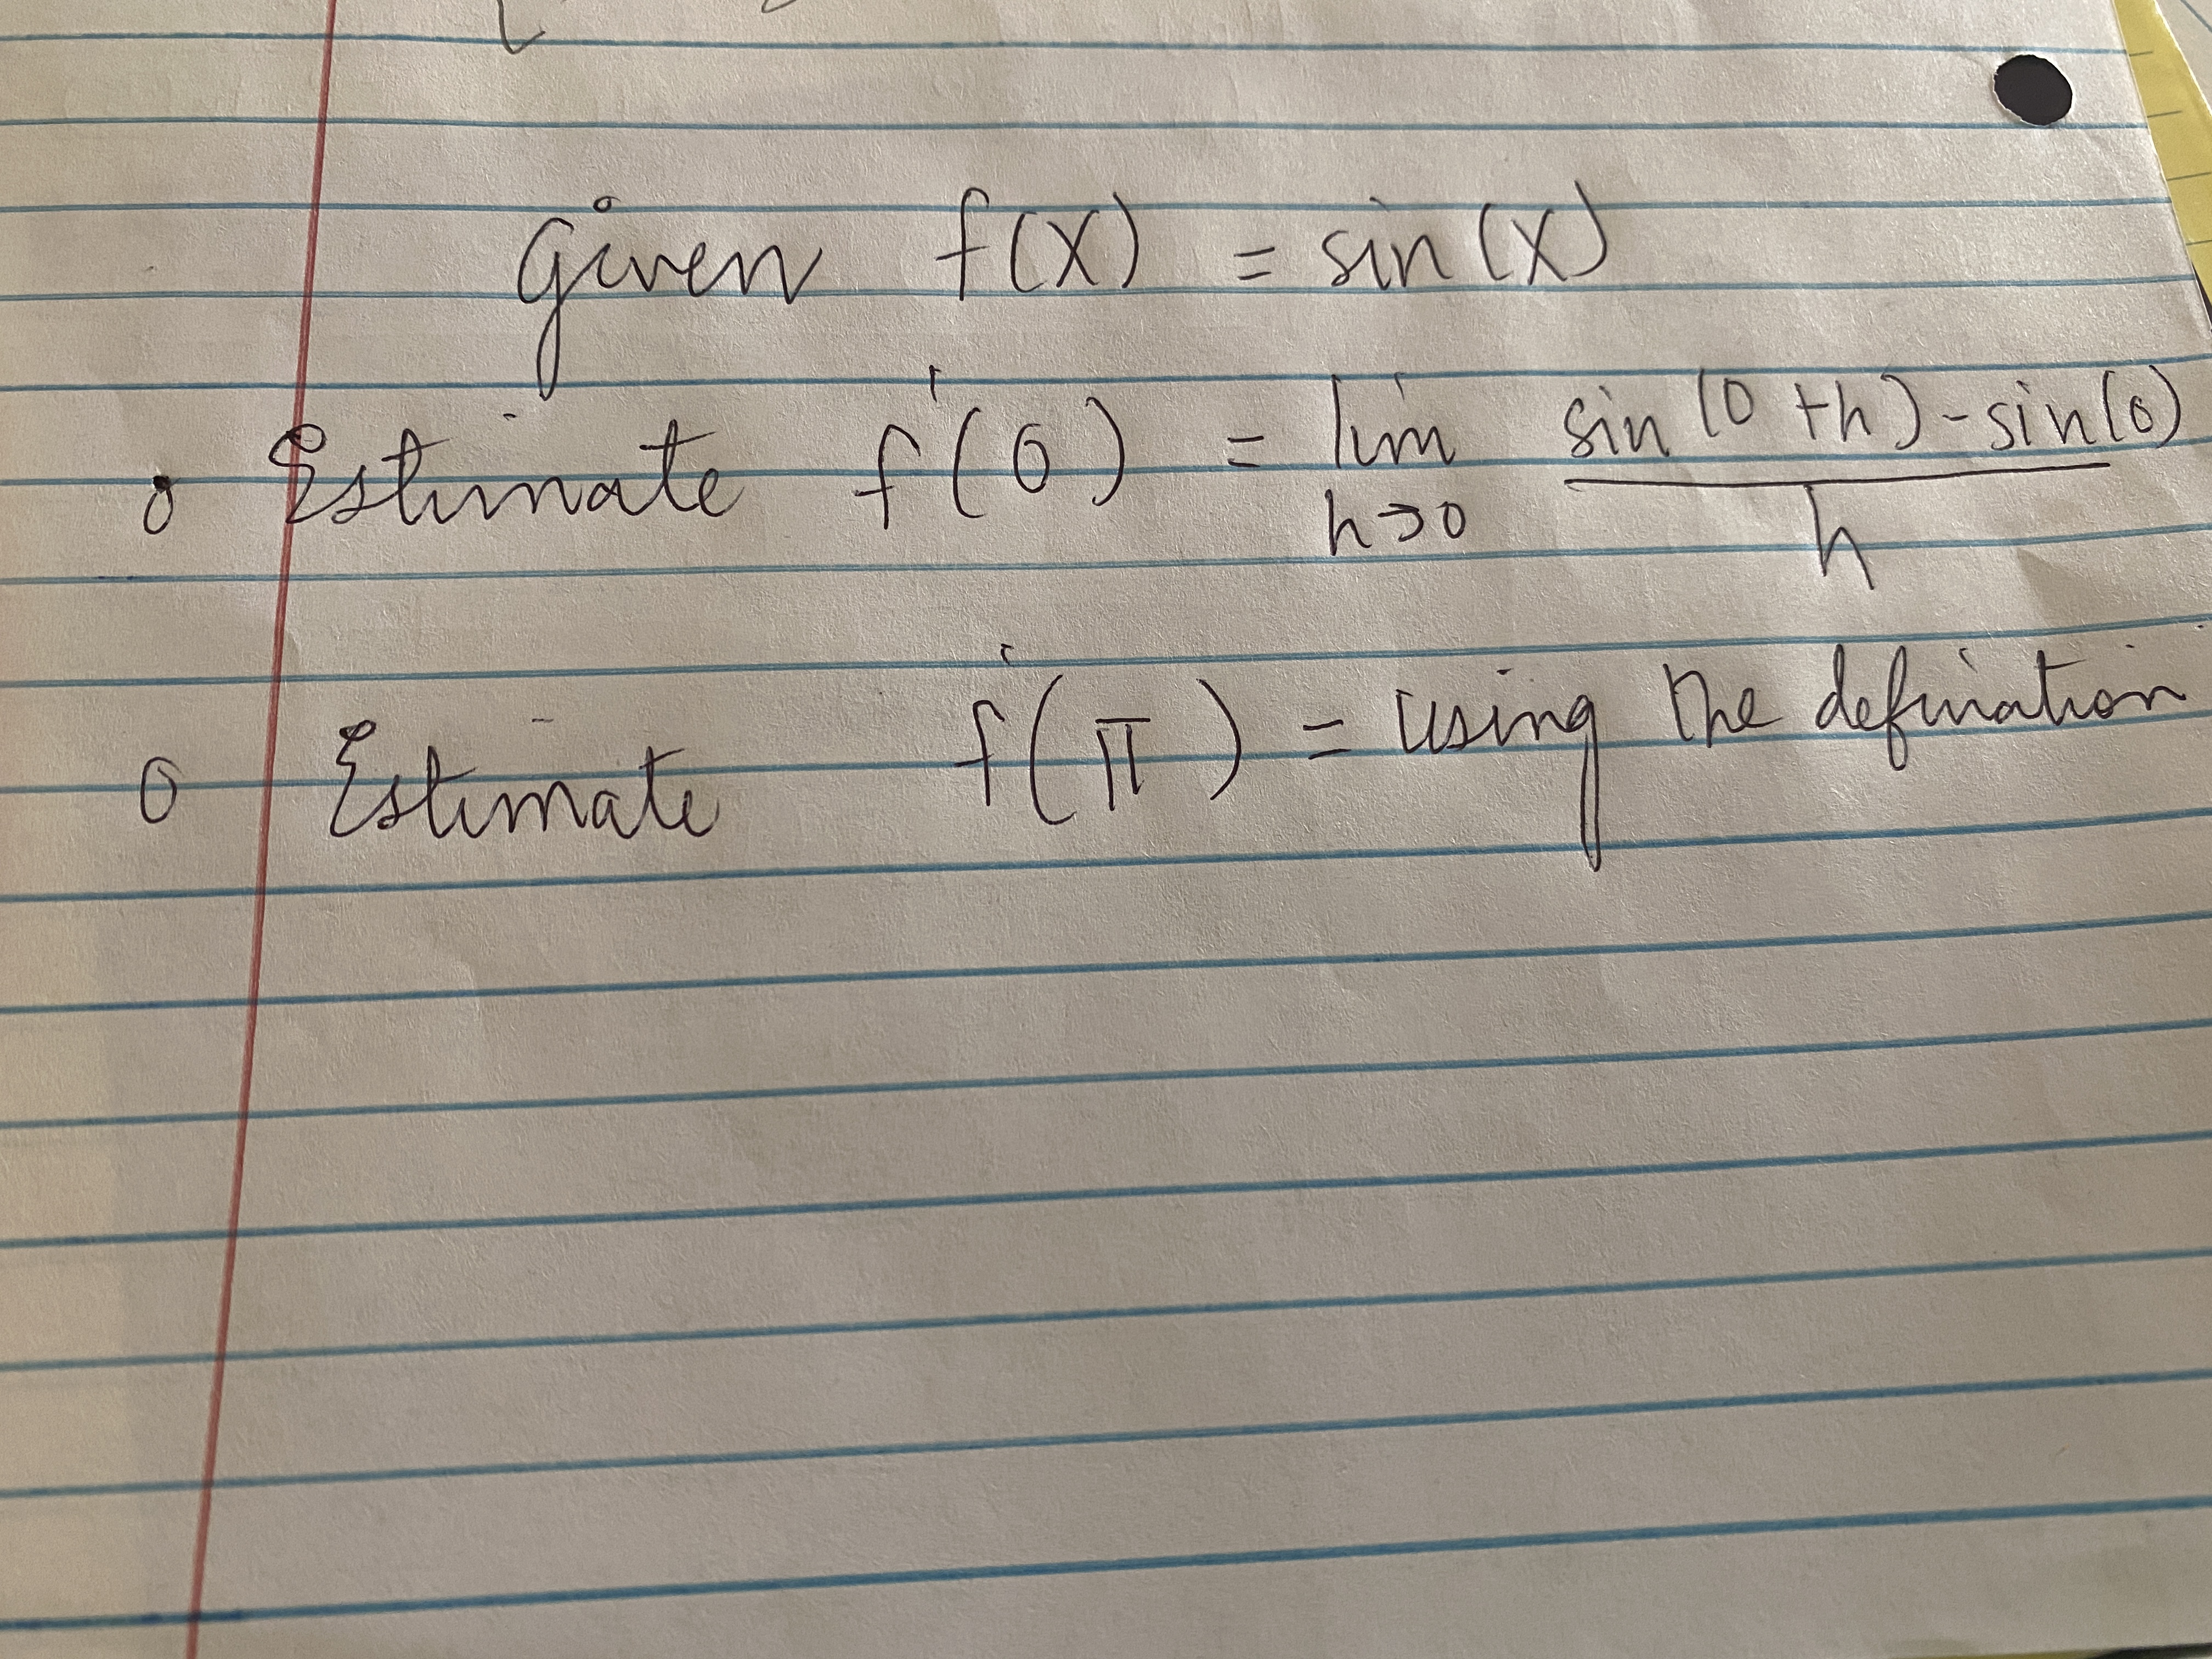 Given f(x) = sin(x)
Estimate f'(0) = lim h→0 (sin(0+h) - sin(0))/h
Estimate f'(π) = using the defination